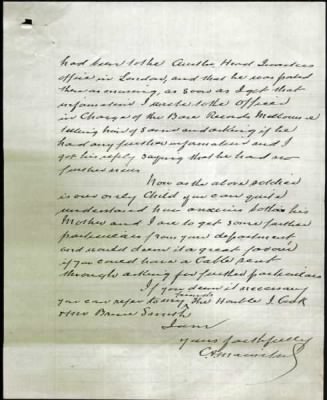 had been to the Austln Head Quarters
office in London, and that he was posted
there as missing, as soon as I got that
information I wrote to the Officer
in Charge of the Base Records Melbourne
telling him of same and asking if he
had any further information and I
got his reply saying that he had no
further news
Now as the above soldier
is our only Child you can quite
understand how anxious both his
Mother and I are to get some further
particulars from your department,
and would deem it a great favour
if you could have a Cable sent
through asking for further particulars
If you deem it necessary
you can refer to my friends The Honble J. Cook
& Mr Bruce Smith
I am
yours faithfully